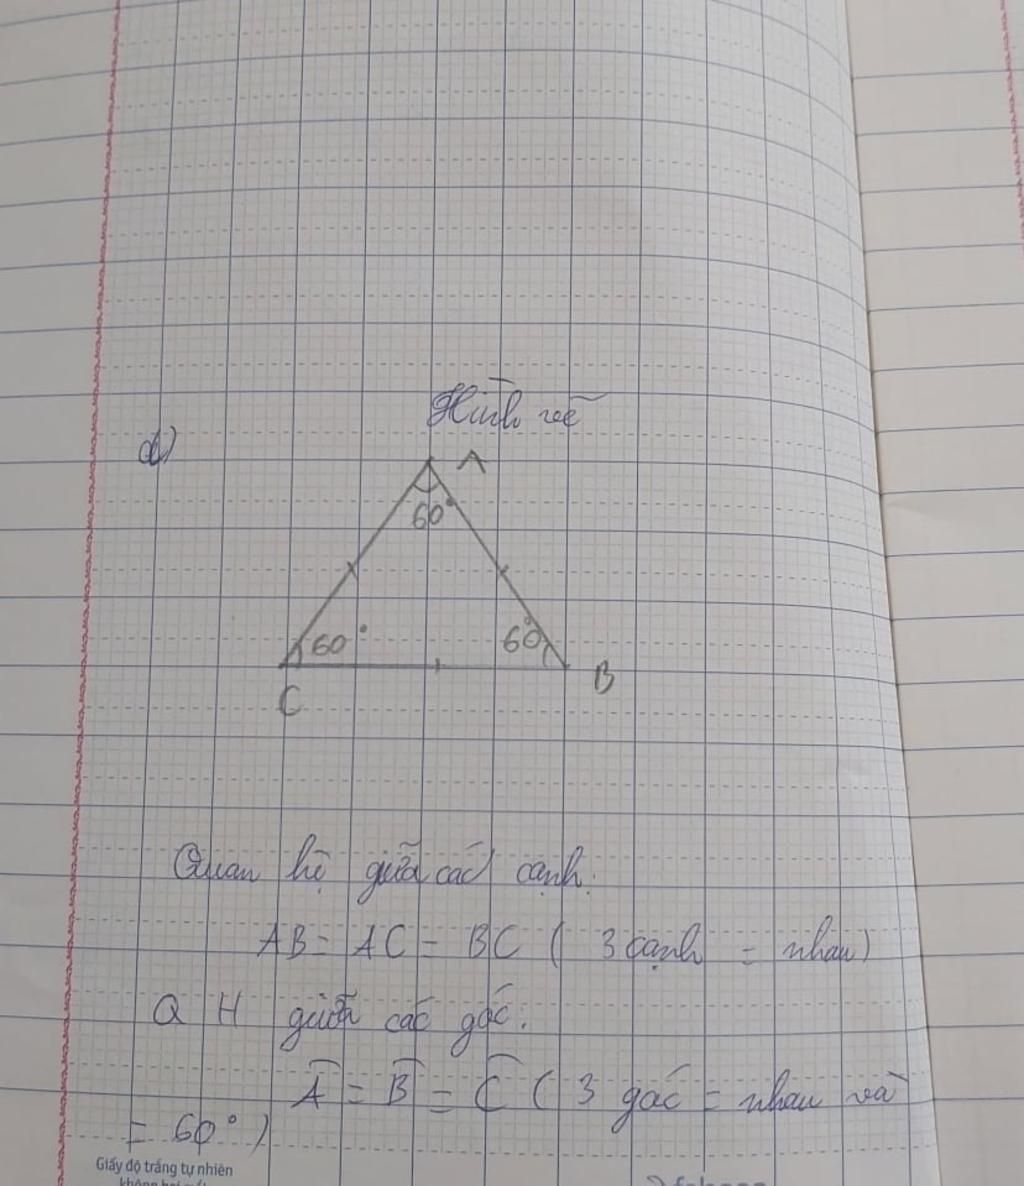 Hình vẽ
d)
A
60°
60° 60°
C B
Quan hệ giữa các cạnh:
AB = AC = BC ( 3 cạnh = nhau)
Q H giữa các góc:
A = B = C ( 3 góc = nhau và
= 60°)
Giấy độ trắng tự nhiên